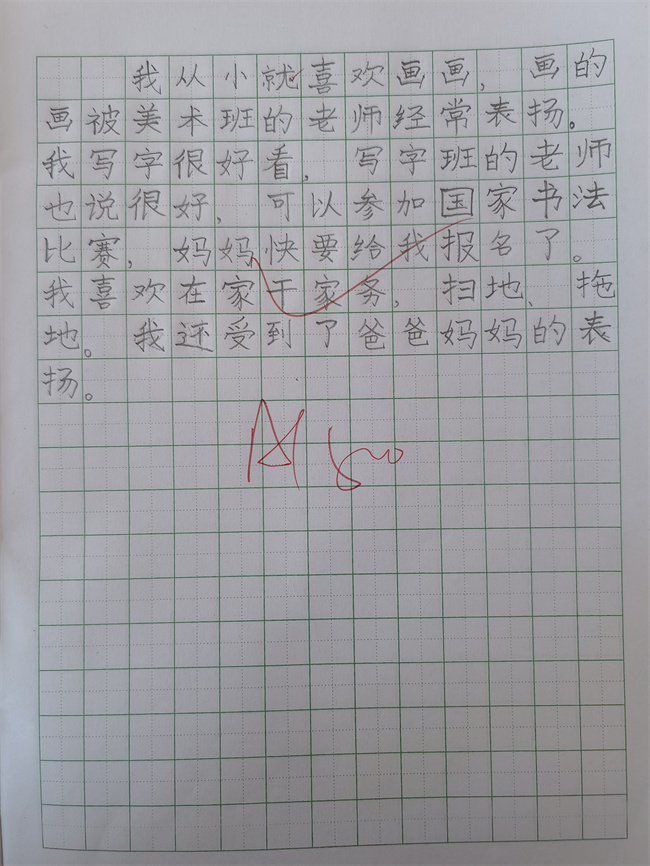 我从小就喜欢画画，画的
画被美术班的老师经常表扬。
我写字很好看，写字班的老师
也说很好，可以参加国家书法
比赛，妈妈快要给我报名了。
我喜欢在家干家务，扫地、拖
地。我还受到了爸爸妈妈的表
扬。